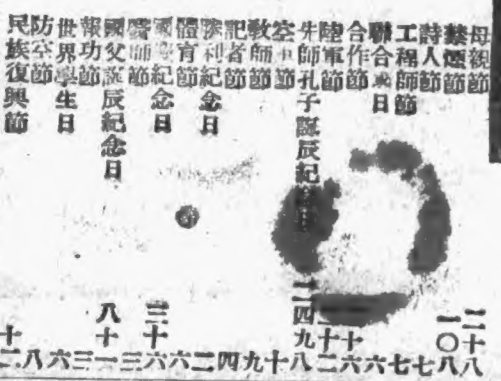 母親節 二十八
禁煙節 一〇八
詩人節 七
工程師節 七
聯合國日 六
合作節 十六
陸軍節 十二
先師孔子誕辰紀 二四九八
空軍節 十
教師節 九
記者節 四
勝利紀念日 二
體育節 六
國慶紀念日 三十六
醫師節 三
國父誕辰紀念日 八十一
報功節 三
世界學生日 六
防空節 八
民族復興節 十二